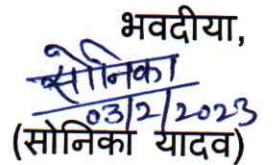 भवदीया,
सोनिका
03/2/2023
(सोनिका यादव)